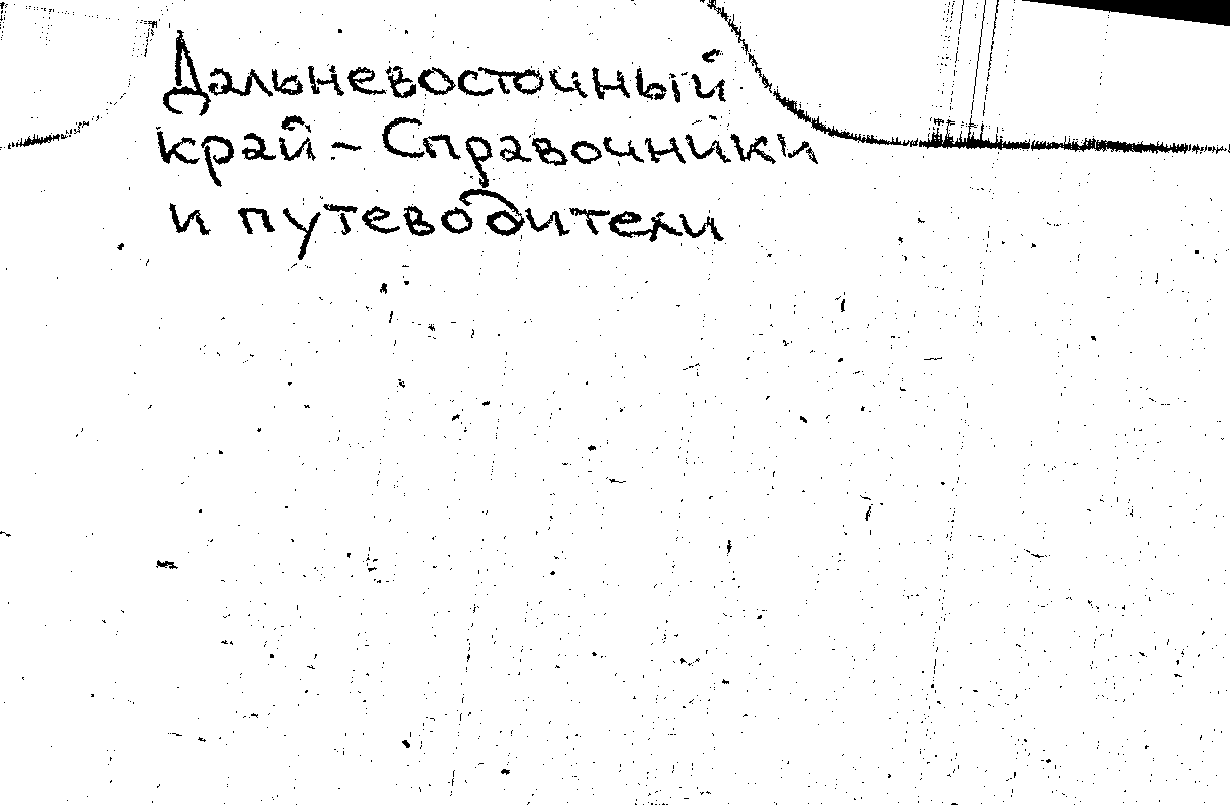 Дальневосточный
край - Справочники
и путеводители